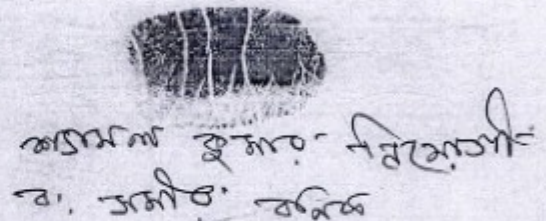 শ্যামল কুমার নিয়োগী
ব. সমীর বনিক